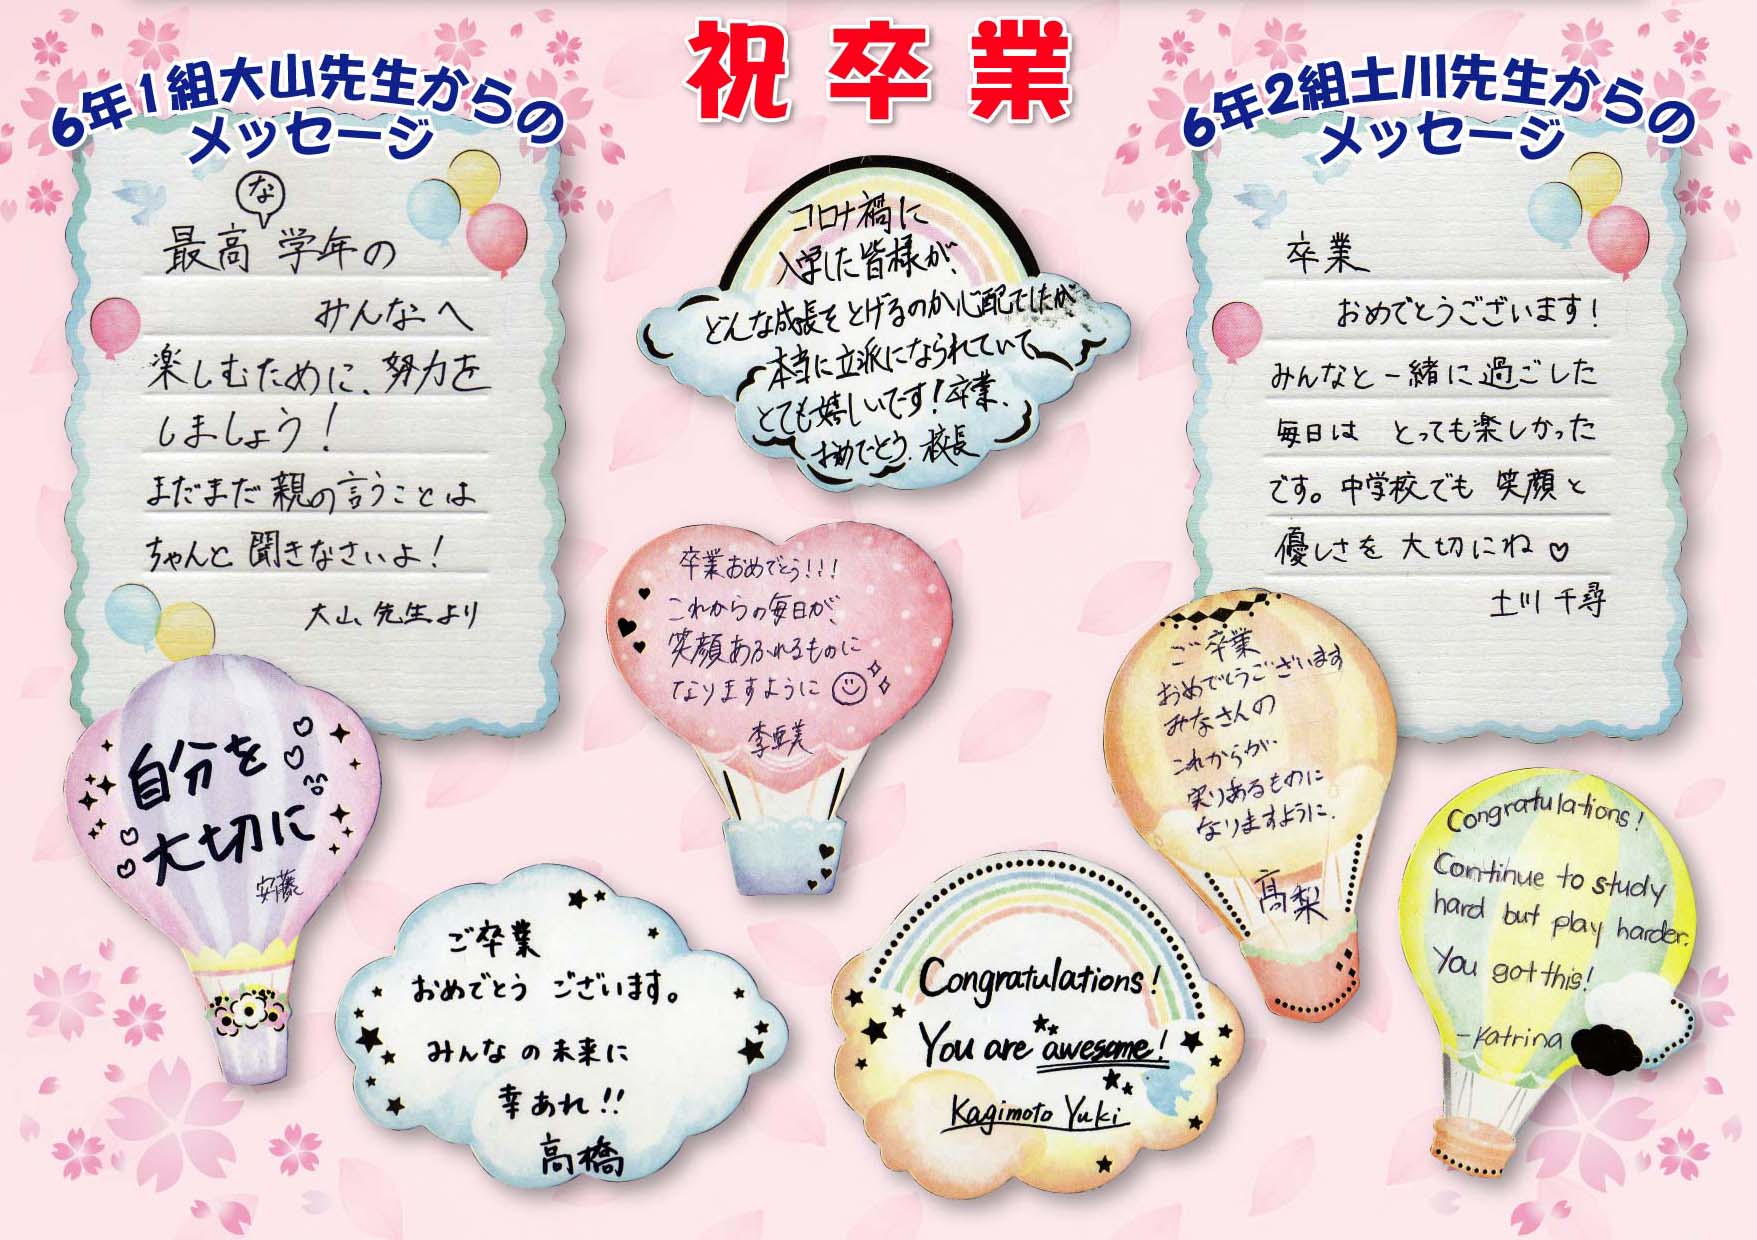 祝卒業
6年1組大山先生からの
メッセージ
な
最高 学年の
みんなへ
楽しむために、努力を
しましょう!
まだまだ親の言うことは
ちゃんと聞きなさいよ!
大山先生より
コロナ禍に
入学した皆様が、
どんな成長をとげるのか心配でしたが
本当に立派になられていて、
とても嬉しいです!卒業、
おめでとう。校長
6年2組土川先生からの
メッセージ
卒業
おめでとうございます!
みんなと一緒に過ごした
毎日は とっても楽しかった
です。中学校でも 笑顔と
優しさを 大切にね♡
土川 千尋
卒業おめでとう!!!
これからの毎日が、
笑顔あふれるものに
なりますように
李亜美
ご卒業
おめでとうございます
みなさんの
これからが、
実りあるものに
なりますように。
高梨
自分を
大切に
安藤
ご卒業
おめでとう ございます。
みんなの未来に
幸あれ!!
高橋
Congratulations!
You are awesome!
Kagimoto Yuki
Congratulations!
Continue to study
hard but play harder.
You got this!
-Katrina